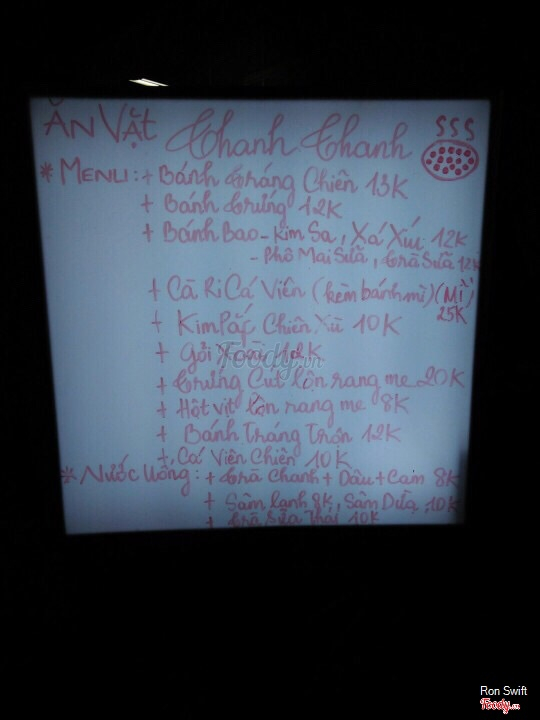 ĂN VẶT Chanh Chanh
* MENU: + Bánh tráng Chiên 13K
+ Bánh trứng 12K
+ Bánh Bao - Kim Sa, Xá Xíu 12K
- Phô Mai Sữa, trà Sữa 12K
+ Cà Ri Cá Viên (kèm bánh mì) (MÌ)
25K
+ Kim Pắp Chiên Xù 10K
+ Gỏi Xoài 12K
+ trứng Cút lộn rang me 20K
+ Hột vịt lộn rang me 8K
+ Bánh Tráng Trộn 12K
+ Cá Viên Chiên 10K
* Nước Uống: + trà Chanh + Dâu + Cam 8K
+ Sâm lạnh 8K, Sâm Dứa 10K
+ trà Sữa Thái 10K
Foody.vn
Ron Swift
Foody.vn